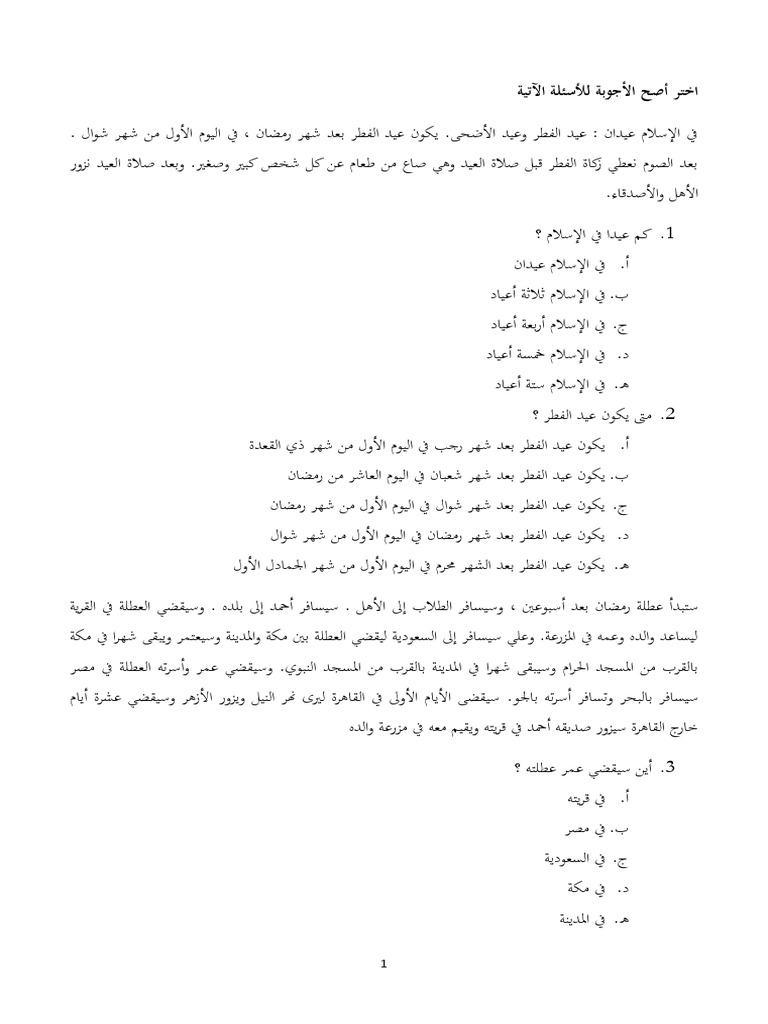 اختر أصح الأجوبة للأسئلة الآتية
في الإسلام عيدان : عيد الفطر وعيد الأضحى. يكون عيد الفطر بعد شهر رمضان ، في اليوم الأول من شهر شوال .
بعد الصوم نعطي زكاة الفطر قبل صلاة العيد وهي صاع من طعام عن كل شخص كبير وصغير. وبعد صلاة العيد نزور
الأهل والأصدقاء.
1. كم عيدا في الإسلام ؟
أ. في الإسلام عيدان
ب. في الإسلام ثلاثة أعياد
ج. في الإسلام أربعة أعياد
د. في الإسلام خمسة أعياد
هـ. في الإسلام ستة أعياد
2. متى يكون عيد الفطر ؟
أ. يكون عيد الفطر بعد شهر رجب في اليوم الأول من شهر ذي القعدة
ب. يكون عيد الفطر بعد شهر شعبان في اليوم العاشر من رمضان
ج. يكون عيد الفطر بعد شهر شوال في اليوم الأول من شهر رمضان
د. يكون عيد الفطر بعد شهر رمضان في اليوم الأول من شهر شوال
هـ. يكون عيد الفطر بعد الشهر محرم في اليوم الأول من شهر الجمادل الأول
ستبدأ عطلة رمضان بعد أسبوعين ، وسيسافر الطلاب إلى الأهل . سيسافر أحمد إلى بلده . وسيقضي العطلة في القرية
ليساعد والده وعمه في المزرعة. وعلي سيسافر إلى السعودية ليقضي العطلة بين مكة والمدينة وسيعتمر ويبقى شهرا في مكة
بالقرب من المسجد الحرام وسيبقى شهرا في المدينة بالقرب من المسجد النبوي. وسيقضي عمر وأسرته العطلة في مصر
سيسافر بالبحر وتسافر أسرته بالجو. سيقضى الأيام الأولى في القاهرة ليرى نهر النيل ويزور الأزهر وسيقضي عشرة أيام
خارج القاهرة سيزور صديقه أحمد في قريته ويقيم معه في مزرعة والده
3. أين سيقضي عمر عطلته ؟
أ. في قريته
ب. في مصر
ج. في السعودية
د. في مكة
هـ. في المدينة
1